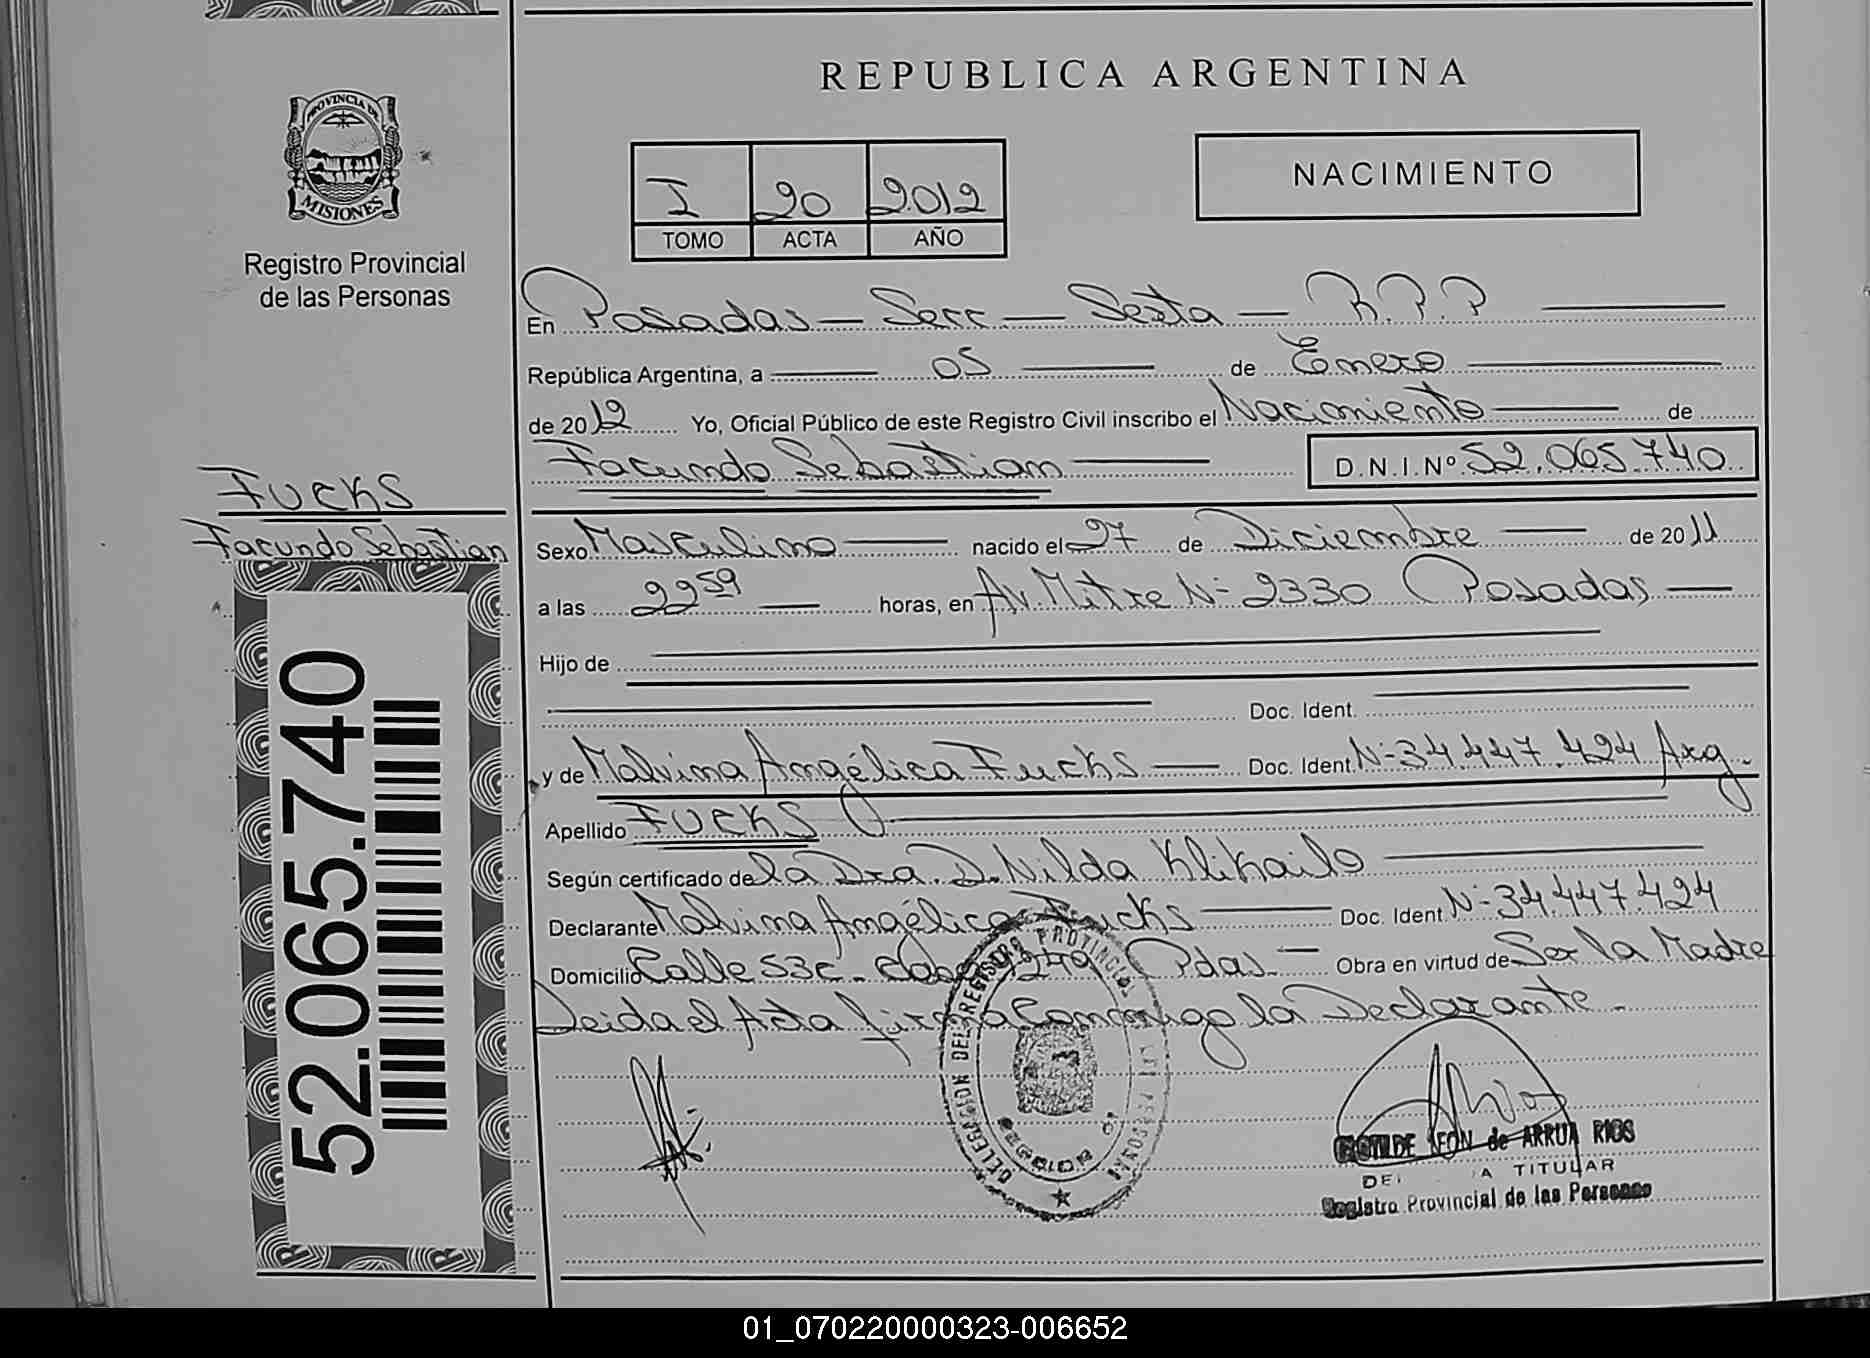 PROVINCIA DE
MISIONES
Registro Provincial
de las Personas
FUCKS
Facundo Sebastian
52.065.740
REPUBLICA ARGENTINA
I 20 2.012
TOMO ACTA AÑO
NACIMIENTO
En Posadas — Secc — Sexta — R.P.P
República Argentina, a 05 de Enero
de 2012 Yo, Oficial Público de este Registro Civil inscribo el Nacimiento de
Facundo Sebastian D.N.I.Nº 52.065.740
Sexo Masculino nacido el 27 de Diciembre de 2011
a las 22 59 horas, en Av. Mitre Nº 2330 Posadas
Hijo de
Doc. Ident.
y de Malvina Angélica Fucks Doc. Ident. Nº 34.447.424 Arg.
Apellido FUCKS
Según certificado de la Dra. D. Nilda Klikailo
Declarante Malvina Angélica Fucks Doc. Ident. Nº 34447424
Domicilio Calle 53c Pdas. Obra en virtud de Ser la Madre
Leida el Acta firma Conmigo la Declarante.
DELEGACION DEL REGISTRO PROVINCIAL DE LAS PERSONAS
de ARRUA RIOS
TITULAR
Registro Provincial de las Personas
01_070220000323-006652